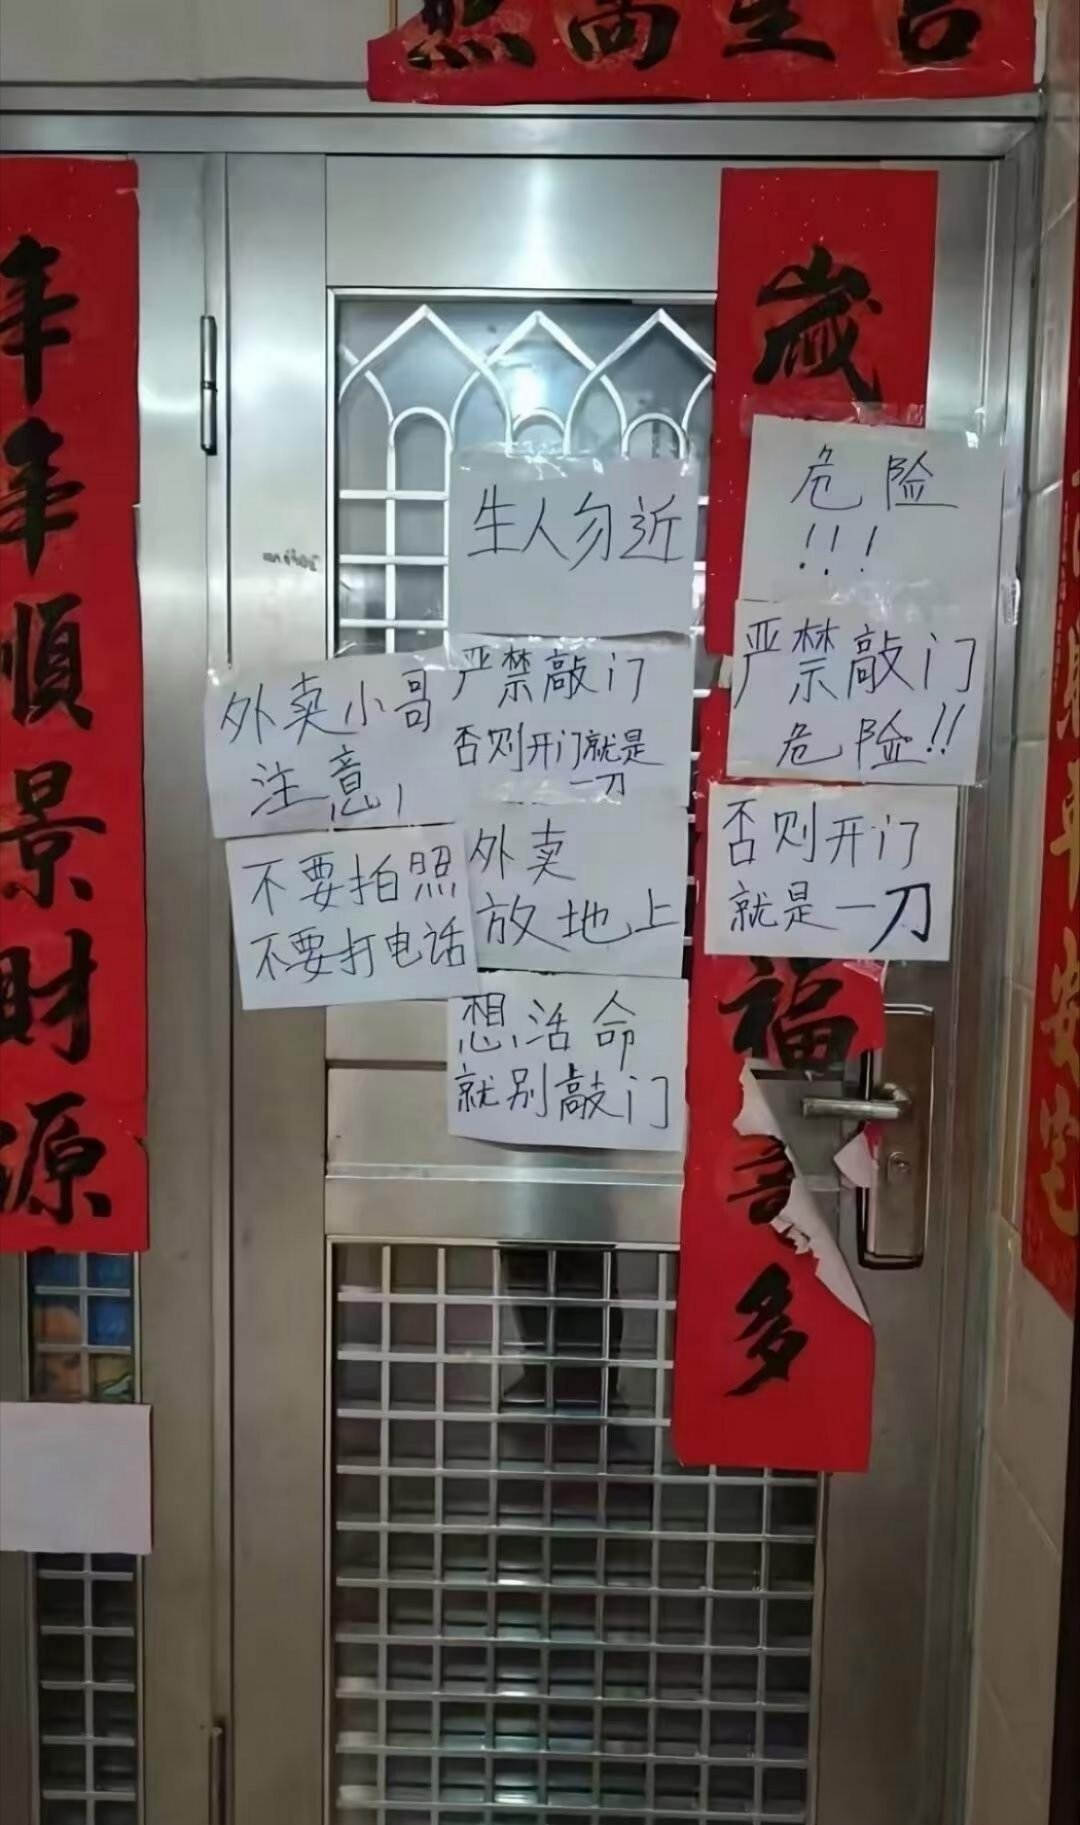 年年順景財源
歲
福
多
生人勿近
危险
!!!
严禁敲门
危险!!
否则开门
就是一刀
外卖小哥
注意!
严禁敲门
否则开门就是
一刀
不要拍照
不要打电话
外卖
放地上
想活命
就别敲门
平安宅